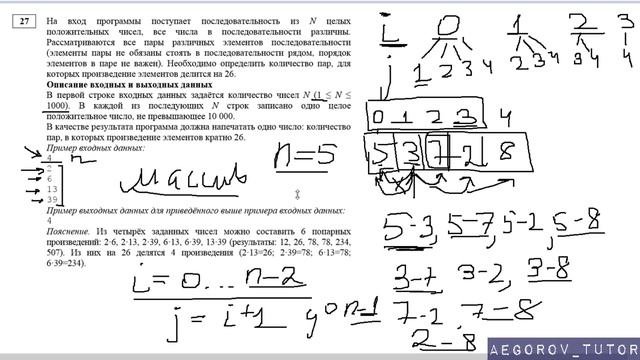 27
На вход программы поступает последовательность из N целых
положительных чисел, все числа в последовательности различны.
Рассматриваются все пары различных элементов последовательности
(элементы пары не обязаны стоять в последовательности рядом, порядок
элементов в паре не важен). Необходимо определить количество пар, для
которых произведение элементов делится на 26.
Описание входных и выходных данных
В первой строке входных данных задаётся количество чисел N (1 ≤ N ≤
1000). В каждой из последующих N строк записано одно целое
положительное число, не превышающее 10 000.
В качестве результата программа должна напечатать одно число: количество
пар, в которых произведение элементов кратно 26.
Пример входных данных:
4
2
6
13
39
Пример выходных данных для приведённого выше примера входных данных:
4
Пояснение. Из четырёх заданных чисел можно составить 6 попарных
произведений: 2·6, 2·13, 2·39, 6·13, 6·39, 13·39 (результаты: 12, 26, 78, 78, 234,
507). Из них на 26 делятся 4 произведения (2·13=26; 2·39=78; 6·13=78;
6·39=234).
n
массив
n=5
i=0...n-2
j=i+1 до n-1
i 0 1 2 3
j 1 2 3 4 2 3 4 3 4 4
0 1 2 3 4
5 3 7 2 8
5-3, 5-7, 5-2, 5-8
3-7 3-2, 3-8
7-2, 7-8
2-8
AEGOROV_TUTOR